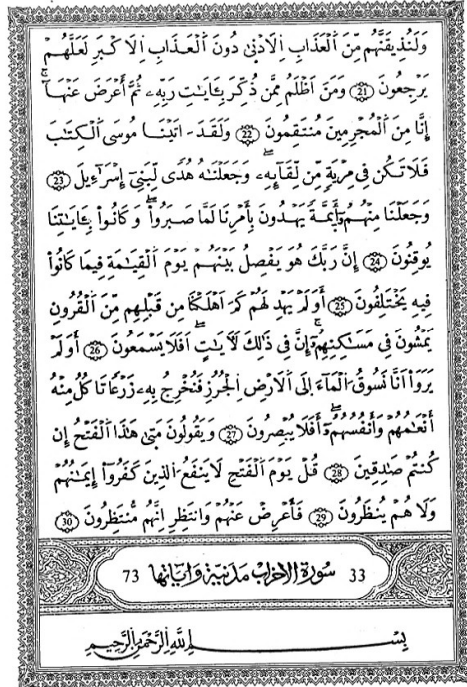 وَلَنُذِيقَنَّهُم مِّنَ اَلْعَذَابِ اِلَادْنىٰ دُونَ اَلْعَذَابِ اِلَاكْبَرِ لَعَلَّهُمْ
يَرْجِعُونَ 21 وَمَنَ اَظْلَمُ مِمَّن ذُكِّرَ بِـَٔايَـٰتِ رَبِّهِۦ ثُمَّ أَعْرَضَ عَنْهَآ
إِنَّا مِنَ اَلْمُجْرِمِينَ مُنتَقِمُونَ 22 وَلَقَدَ ـاتَيْنَا مُوسَى اَلْكِتَـٰبَ
فَلَا تَكُن فِي مِرْيَةٍ مِّن لِّقَآئِهِۦ وَجَعَلْنَـٰهُ هُدًى لِّبَنِىٓ إِسْرَآءِيلَ 23
وَجَعَلْنَا مِنْهُمُۥٓ أَيِمَّةً يَهْدُونَ بِأَمْرِنَا لَمَّا صَبَرُواْ وَكَانُواْ بِـَٔايَـٰتِنَا
يُوقِنُونَ 24 إِنَّ رَبَّكَ هُوَ يَفْصِلُ بَيْنَهُمْ يَوْمَ اَلْقِيَـٰمَةِ فِيمَا كَانُواْ
فِيهِ يَخْتَلِفُونَ 25 أَوَلَمْ يَهْدِ لَهُمْ كَمَ اَهْلَكْنَا مِن قَبْلِهِم مِّنَ اَلْقُرُونِ
يَمْشُونَ فِي مَسَـٰكِنِهِمُۥٓ إِنَّ فِي ذَٰلِكَ لَأَيَـٰتٍ اَفَلَا يَسْمَعُونَ 26 أَوَلَمْ
يَرَوَاْ اَنَّا نَسُوقُ اَلْمَآءَ إِلَى اَلْأَرْضِ اِلْجُرُزِ فَنُخْرِجُ بِهِۦ زَرْعًا تَاكُلُ مِنْهُ
أَنْعَـٰمُهُمْ وَأَنفُسُهُمُۥٓ أَفَلَا يُبْصِرُونَ 27 وَيَقُولُونَ مَتىٰ هَـٰذَا اَلْفَتْحُ إِن
كُنتُمْ صَـٰدِقِينَ 28 قُلْ يَوْمَ اَلْفَتْحِ لَا يَنفَعُ الذِينَ كَفَرُواْ إِيمَـٰنُهُمْ
وَلَا هُمْ يُنظَرُونَ 29 فَأَعْرِضْ عَنْهُمْ وَانتَظِرِ اِنَّهُم مُّنتَظِرُونَ 30
33 سورة الاحزاب مدنية وءاياتها 73
بِسْمِ اِللَّهِ اِلرَّحْمَـٰنِ اِلرَّحِيمِ